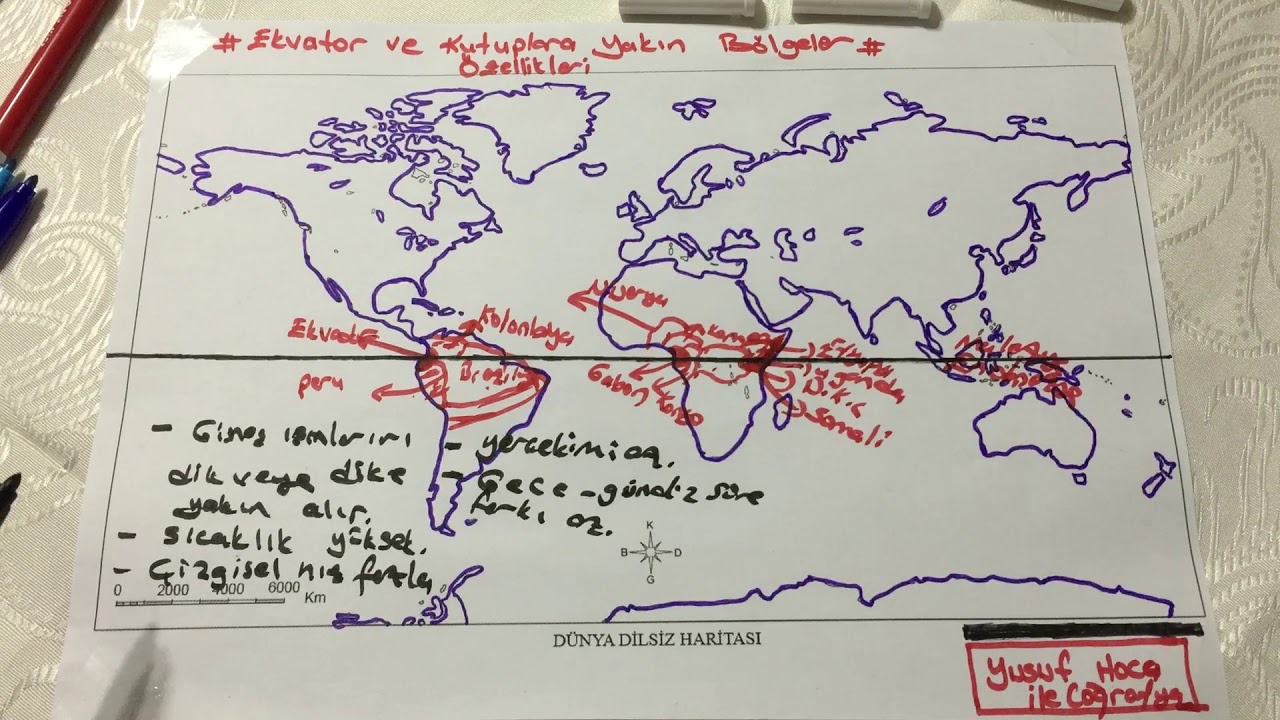 # Ekvator ve Kutuplara Yakın Bölgeler #
Özellikleri
Ekvator
Kolonbiya
Peru
Brezilya
Nijerya
Kamerun
Gabon
Kongo
Uganda
Somali
- Güneş ışınlarını
dik veya dike
yakın alır.
- Sıcaklık yüksek.
- Çizgisel hız fazla
- yerçekimi az.
- Gece-gündüz süre
farkı az.
K
B D
G
0 2000 4000 6000
Km
DÜNYA DİLSİZ HARİTASI
Yusuf Hoca
ile Coğrafya